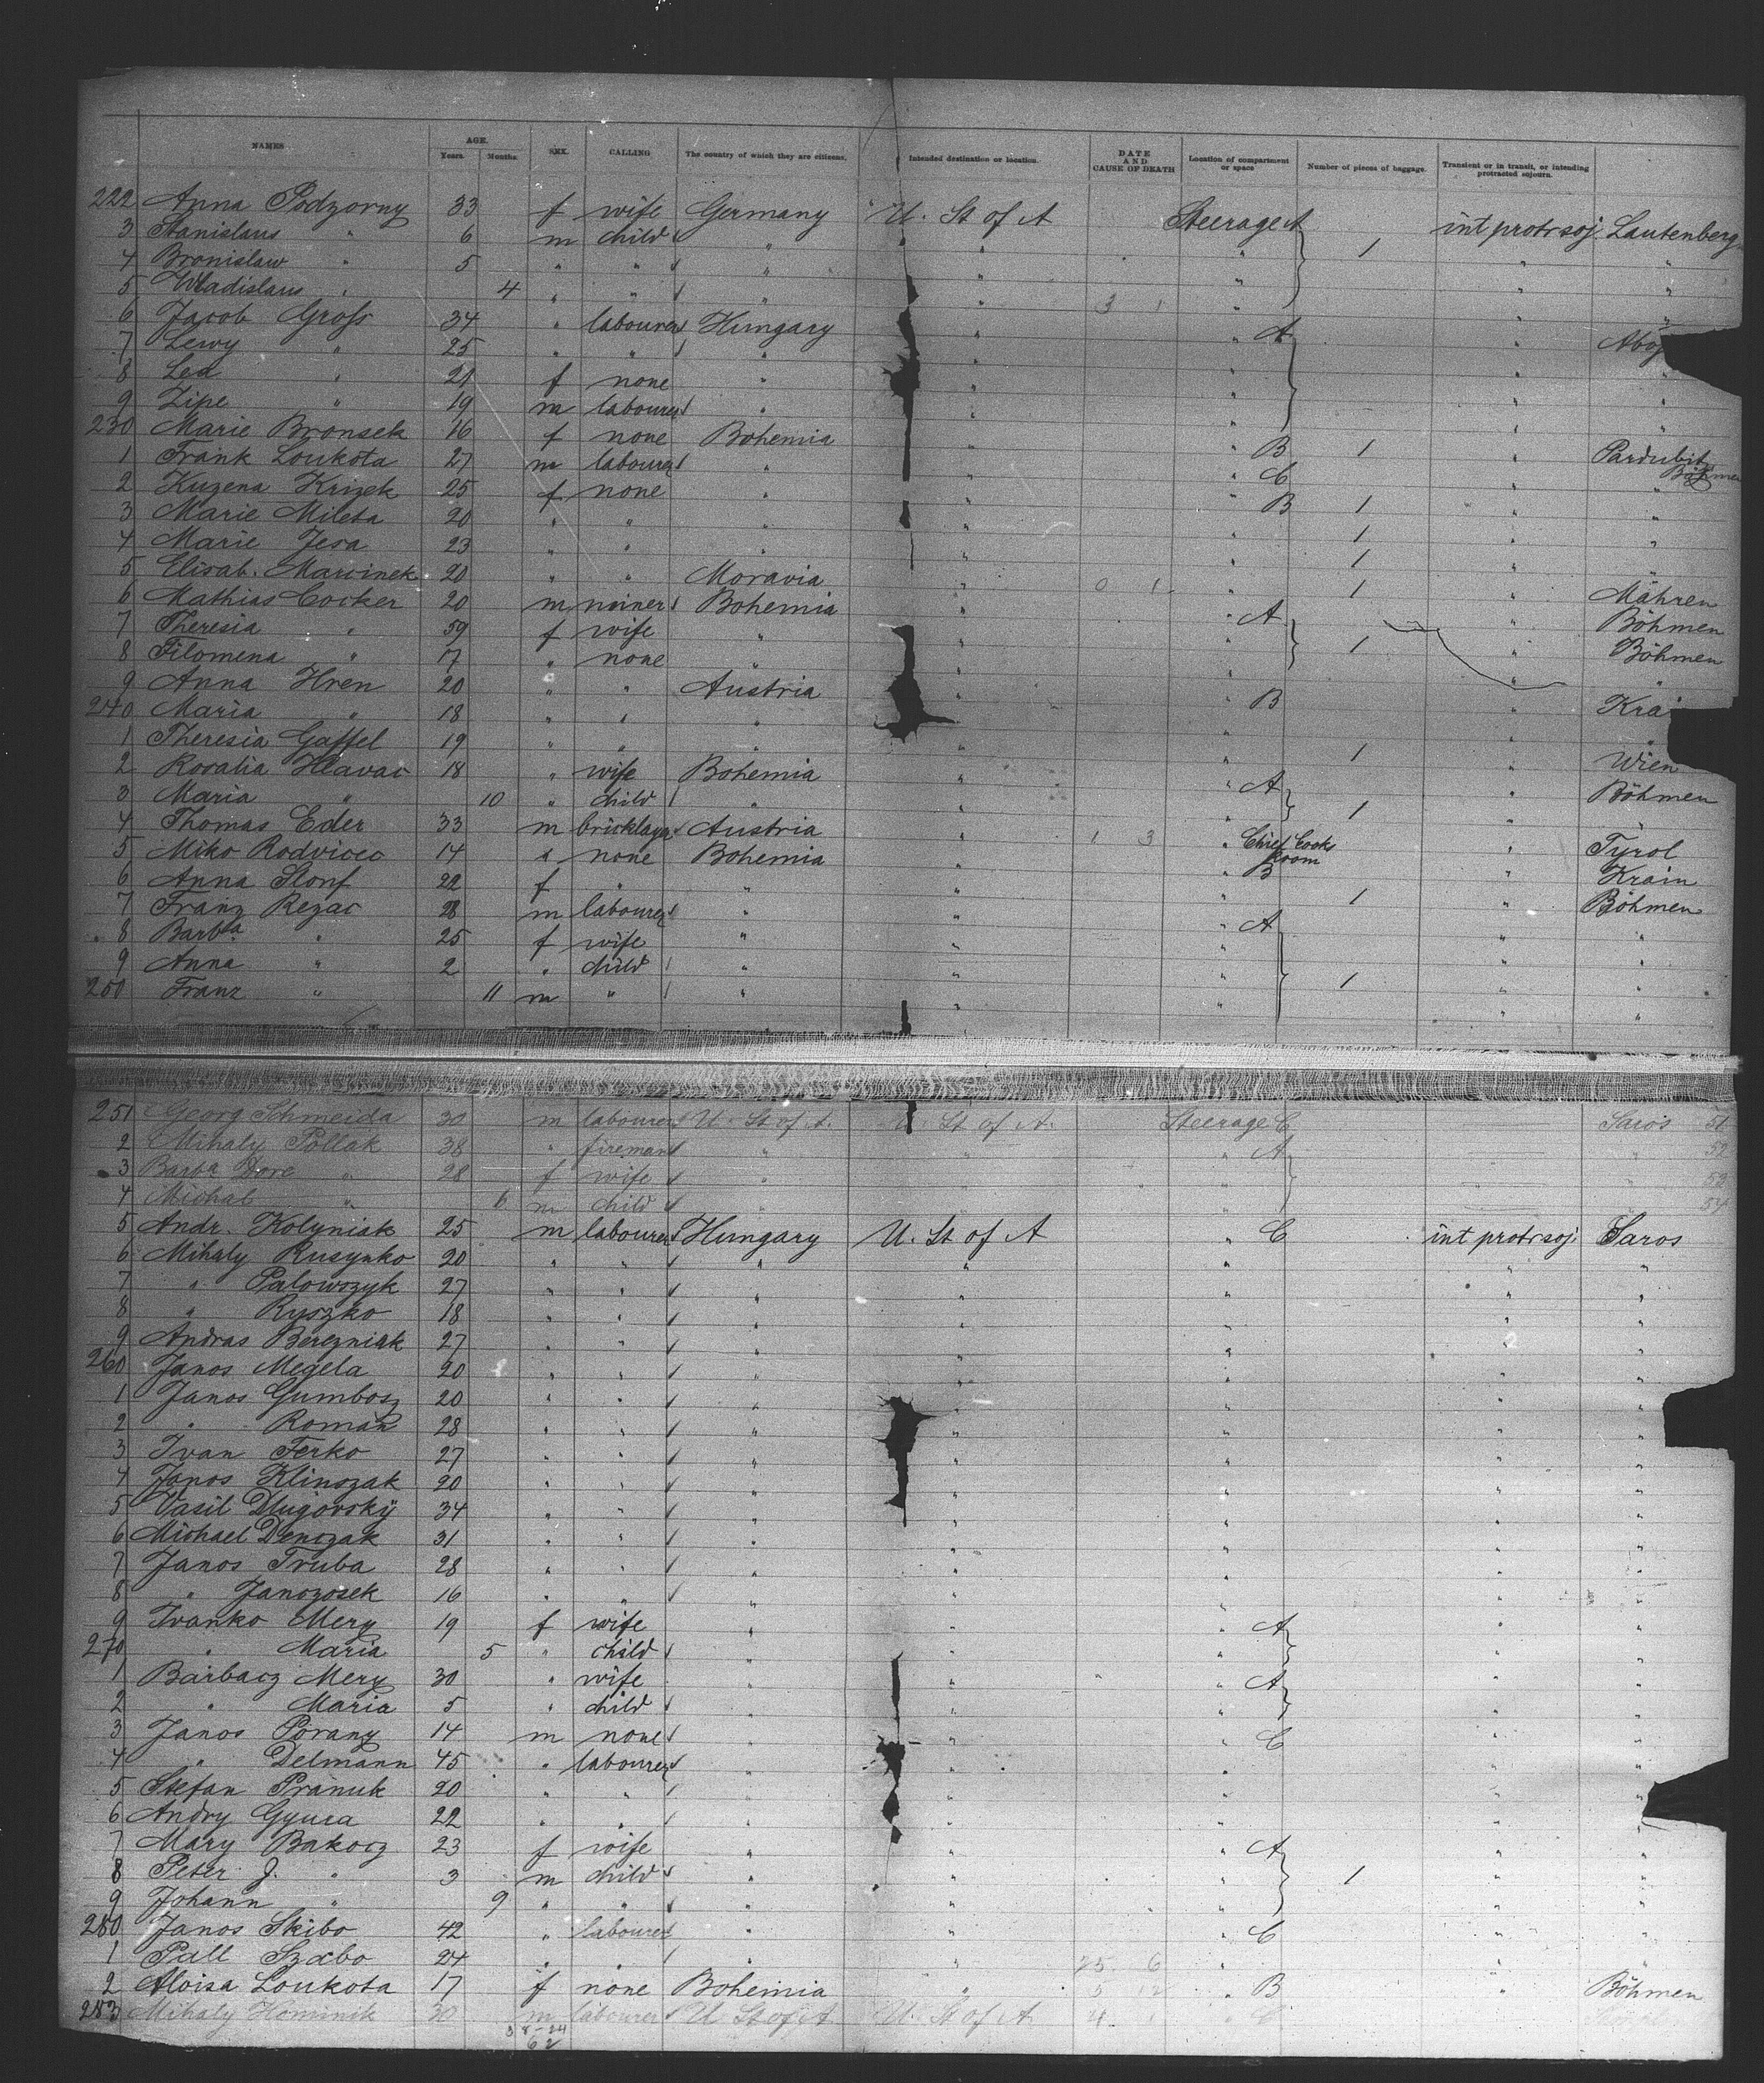 NAMES AGE. Years. Months. SEX. CALLING The country of which they are citizens. Intended destination or location. DATE AND CAUSE OF DEATH Location of compartment or space Number of pieces of baggage. Transient or in transit, or intending protracted sojourn.
222 Anna Podzorny 33 f wife Germany U. St of A Steerage A int protr soj Lautenberg
3 Stanislaus " 6 m child " " " 1 " "
4 Bronislaw " 5 " " " " " " "
5 Wladislaus " 4 " " " " 3 1 " " "
6 Jacob Gross 34 " labourer Hungary " " A "
7 Lewy " 25 " " " " " " "
8 Lea " 21 f none " " " " "
9 Zipe " 19 m labourer " " " " "
230 Marie Bronsek 16 f none Bohemia " " B 1 " Pardubitz Böhmen
1 Frank Loukota 27 m labourer " " " C " "
2 Kuzena Krizek 25 f none " " " B 1 " "
3 Marie Mileta 20 " " " " " 1 " "
4 Marie Jesa 23 " " " " " 1 " "
5 Elisab. Marcinek 20 " " Moravia " 0 1 " 1 " Mähren
6 Mathias Cocker 20 m miner Bohemia " " A " Böhmen
7 Theresia " 59 f wife " " " 1 " Böhmen
8 Filomena " 17 " none " " " " "
9 Anna Hren 20 " " Austria " " B "
240 Maria " 18 " " " " " " "
1 Theresia Gaffel 19 " " " " " 1 " Wien
2 Rosalia Hlavac 18 " wife Bohemia " " A " Böhmen
3 Maria " 10 " child " " " 1 "
4 Thomas Eder 33 m bricklayer Austria " 1 3 " Chief Cooks Room " Tyrol
5 Miko Rodvicec 14 " none Bohemia " " B " Krain
6 Anna Slonf 22 f " " " " 1 " Böhmen
7 Franz Rezac 28 m labourer " " " A " "
8 Barba " 25 f wife " " " " "
9 Anna " 2 " child " " " 1 " "
250 Franz " 11 m " " " " " "
251 Georg Schmeida 30 m labourer U. St of A. U. St of A. Steerage C Saros 51
2 Mihaly Pollak 38 " fireman " " " A " 52
3 Barba Dore " 28 f wife " " " " 53
4 Michal " 6 m child " " " " 54
5 Andr. Kolyniak 25 m labourer Hungary U. St of A " C int protr soj. Saros
6 Mihaly Rusynko 20 " " " " " " "
7 " Palowszyk 27 " " " " " " "
8 " Ryszko 18 " " " " " " "
9 Andras Berezniak 27 " " " " " " "
260 Janos Megela 20 " " " " " " "
1 Janos Gumbosz 20 " " " " " " "
2 " Roman 28 " " " " " " "
3 Ivan Ferko 27 " " " " " " "
4 Janos Klinszak 20 " " " " " " "
5 Vasil Dlugovsky 34 " " " " " " "
6 Michael Denczak 31 " " " " " " "
7 Janos Truba 28 " " " " " " "
8 " Janczosek 16 " " " " " " "
9 Ivanko Mery 19 f wife " " " A " "
270 " Maria 5 " child " " " " "
1 Barbacz Mery 30 " wife " " " A " "
2 " Maria 5 " child " " " " "
3 Janos Porany 14 m none " " " C " "
4 " Delmann 45 " labourer " " " " "
5 Stefan Pranuk 20 " " " " " " "
6 Andry Gyura 22 " " " " " " "
7 Mary Bakocz 23 f wife " " " A " "
8 Peter J. " 3 m child " " " 1 " "
9 Johann " 9 " " " " " " "
280 Janos Skibo 42 " labourer " " " C " "
1 Pall Szabo 24 " " " " 25 6 " " "
2 Aloisa Loukota 17 f none Bohemia " 5 12 " B " Böhmen
283 Mihaly Hominik 30 m labourer U. St of A U. St of A 4 1 " C
62